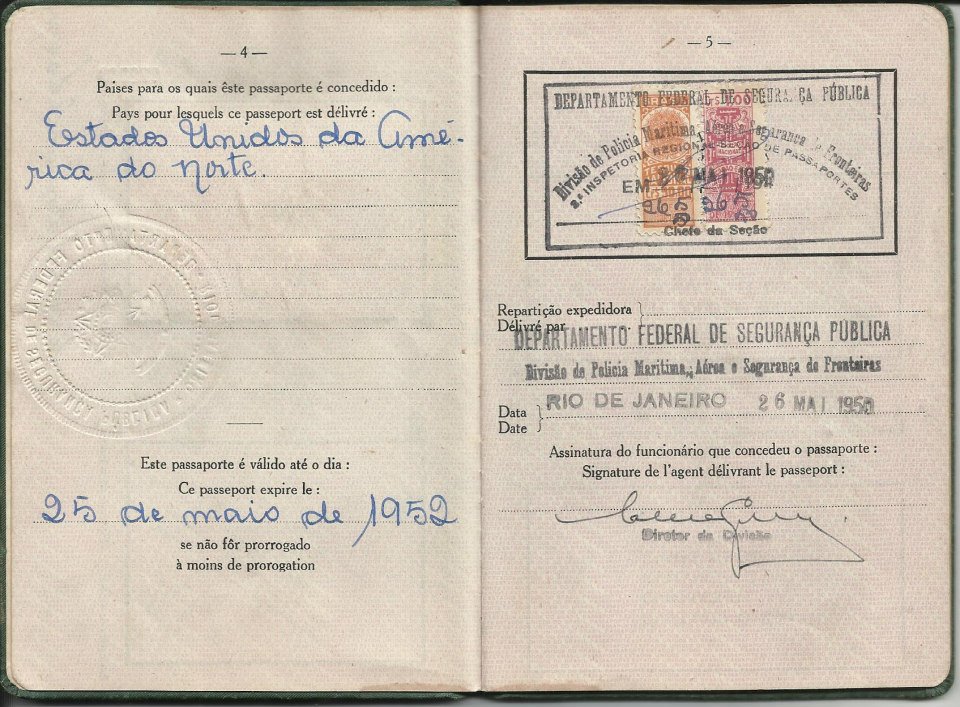 — 4 —
Paises para os quais êste passaporte é concedido :
Pays pour lesquels ce passeport est délivré :
Estados Unidos da Amé-
rica do Norte.
Este passaporte é válido até o dia :
Ce passeport expire le :
25 de maio de 1952
se não fôr prorrogado
à moins de prorogation
— 5 —
DEPARTAMENTO FEDERAL DE SEGURANÇA PÚBLICA
Divisão de Policia Maritima, Aérea e Segurança de Fronteiras
2.ª INSPETORIA REGIONAL-SEÇÃO DE PASSAPORTES
EM 26 MAI 1950
Chefe da Seção
Repartição expedidora
Délivré par
DEPARTAMENTO FEDERAL DE SEGURANÇA PÚBLICA
Divisão de Policia Maritima, Aérea e Segurança de Fronteiras
Data
Date
RIO DE JANEIRO 26 MAI 1950
Assinatura do funcionário que concedeu o passaporte :
Signature de l'agent délivrant le passeport :
Diretor da Divisão